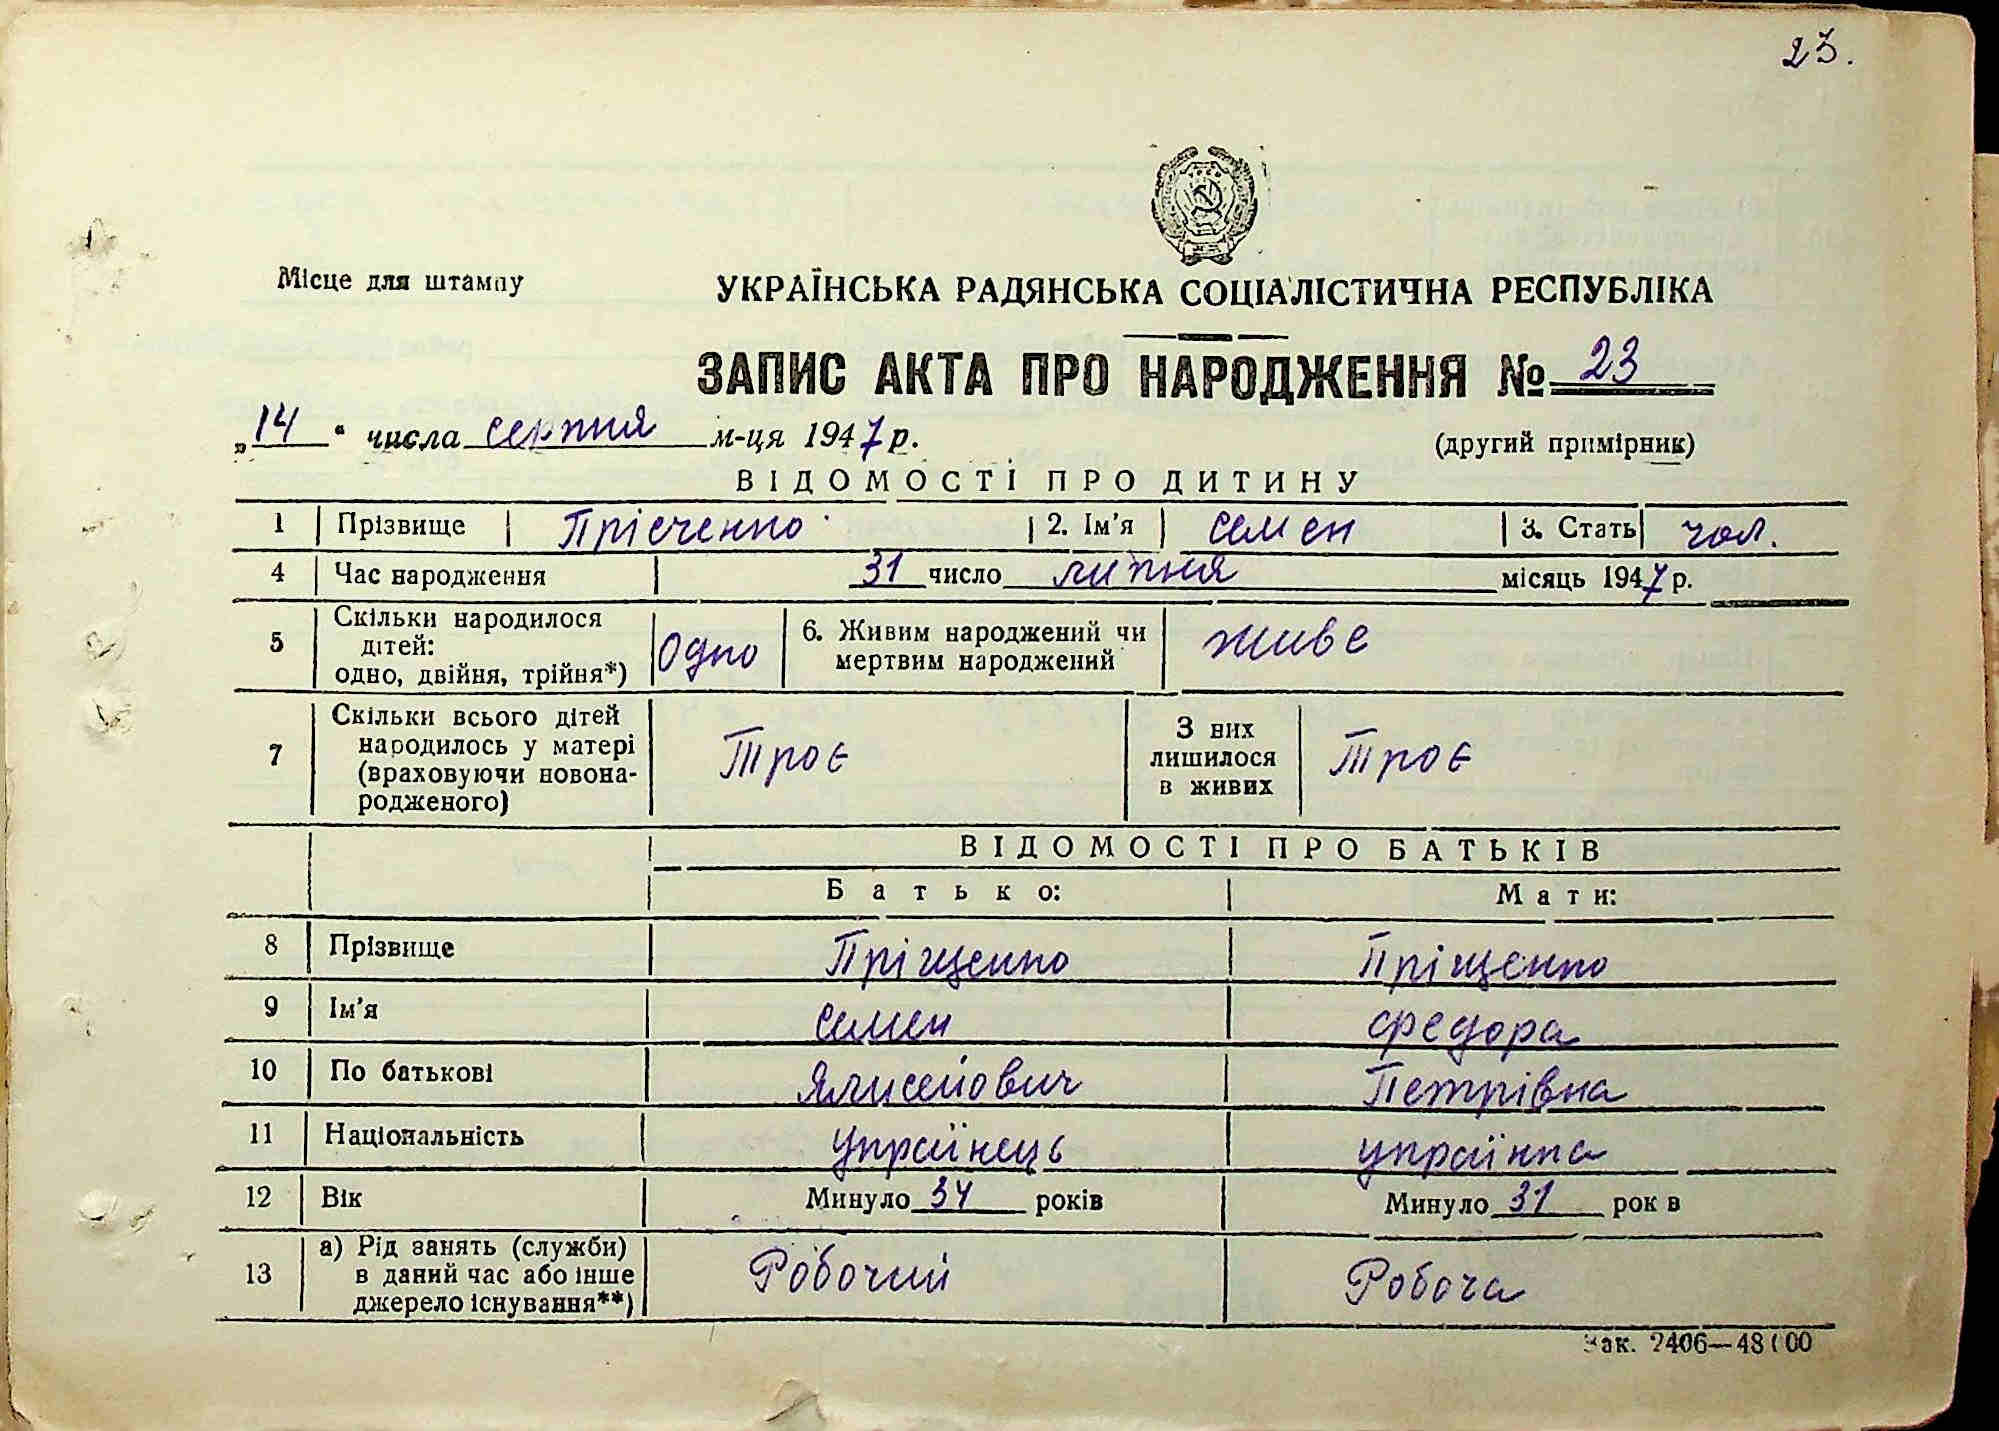 23.
Місце для штампу
УКРАЇНСЬКА РАДЯНСЬКА СОЦІАЛІСТИЧНА РЕСПУБЛІКА
ЗАПИС АКТА ПРО НАРОДЖЕННЯ № 23
„14“ числа серпня м-ця 1947 р.
(другий примірник)
ВІДОМОСТІ ПРО ДИТИНУ
1 Прізвище Прісченко 2. Ім'я Семен 3. Стать чол.
4 Час народження 31 число липня місяць 1947 р.
5 Скільки народилося дітей: одно, двійня, трійня*) Одно 6. Живим народжений чи мертвим народжений живе
7 Скільки всього дітей народилось у матері (враховуючи новонародженого) Троє З них лишилося в живих Троє
ВІДОМОСТІ ПРО БАТЬКІВ
Батько: Мати:
8 Прізвище Пріщенко Пріщенко
9 Ім'я Семен Федора
10 По батькові Петрівна
11 Національність українець українка
12 Вік Минуло 34 років Минуло 31 рок в
13 а) Рід занять (служби) в даний час або інше джерело існування**) Робочий Робоча
Зак. 2406—48000